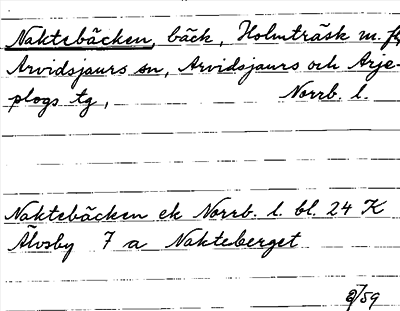 Naktebäcken, bäck, Holmträsk m. fl,
Arvidsjaurs sn, Arvidsjaurs och Arje-
plogs tg, Norrb. l.
Naktebäcken ek Norrb. l. bl. 24 K
Älvsby 7 a Nakteberget
/59